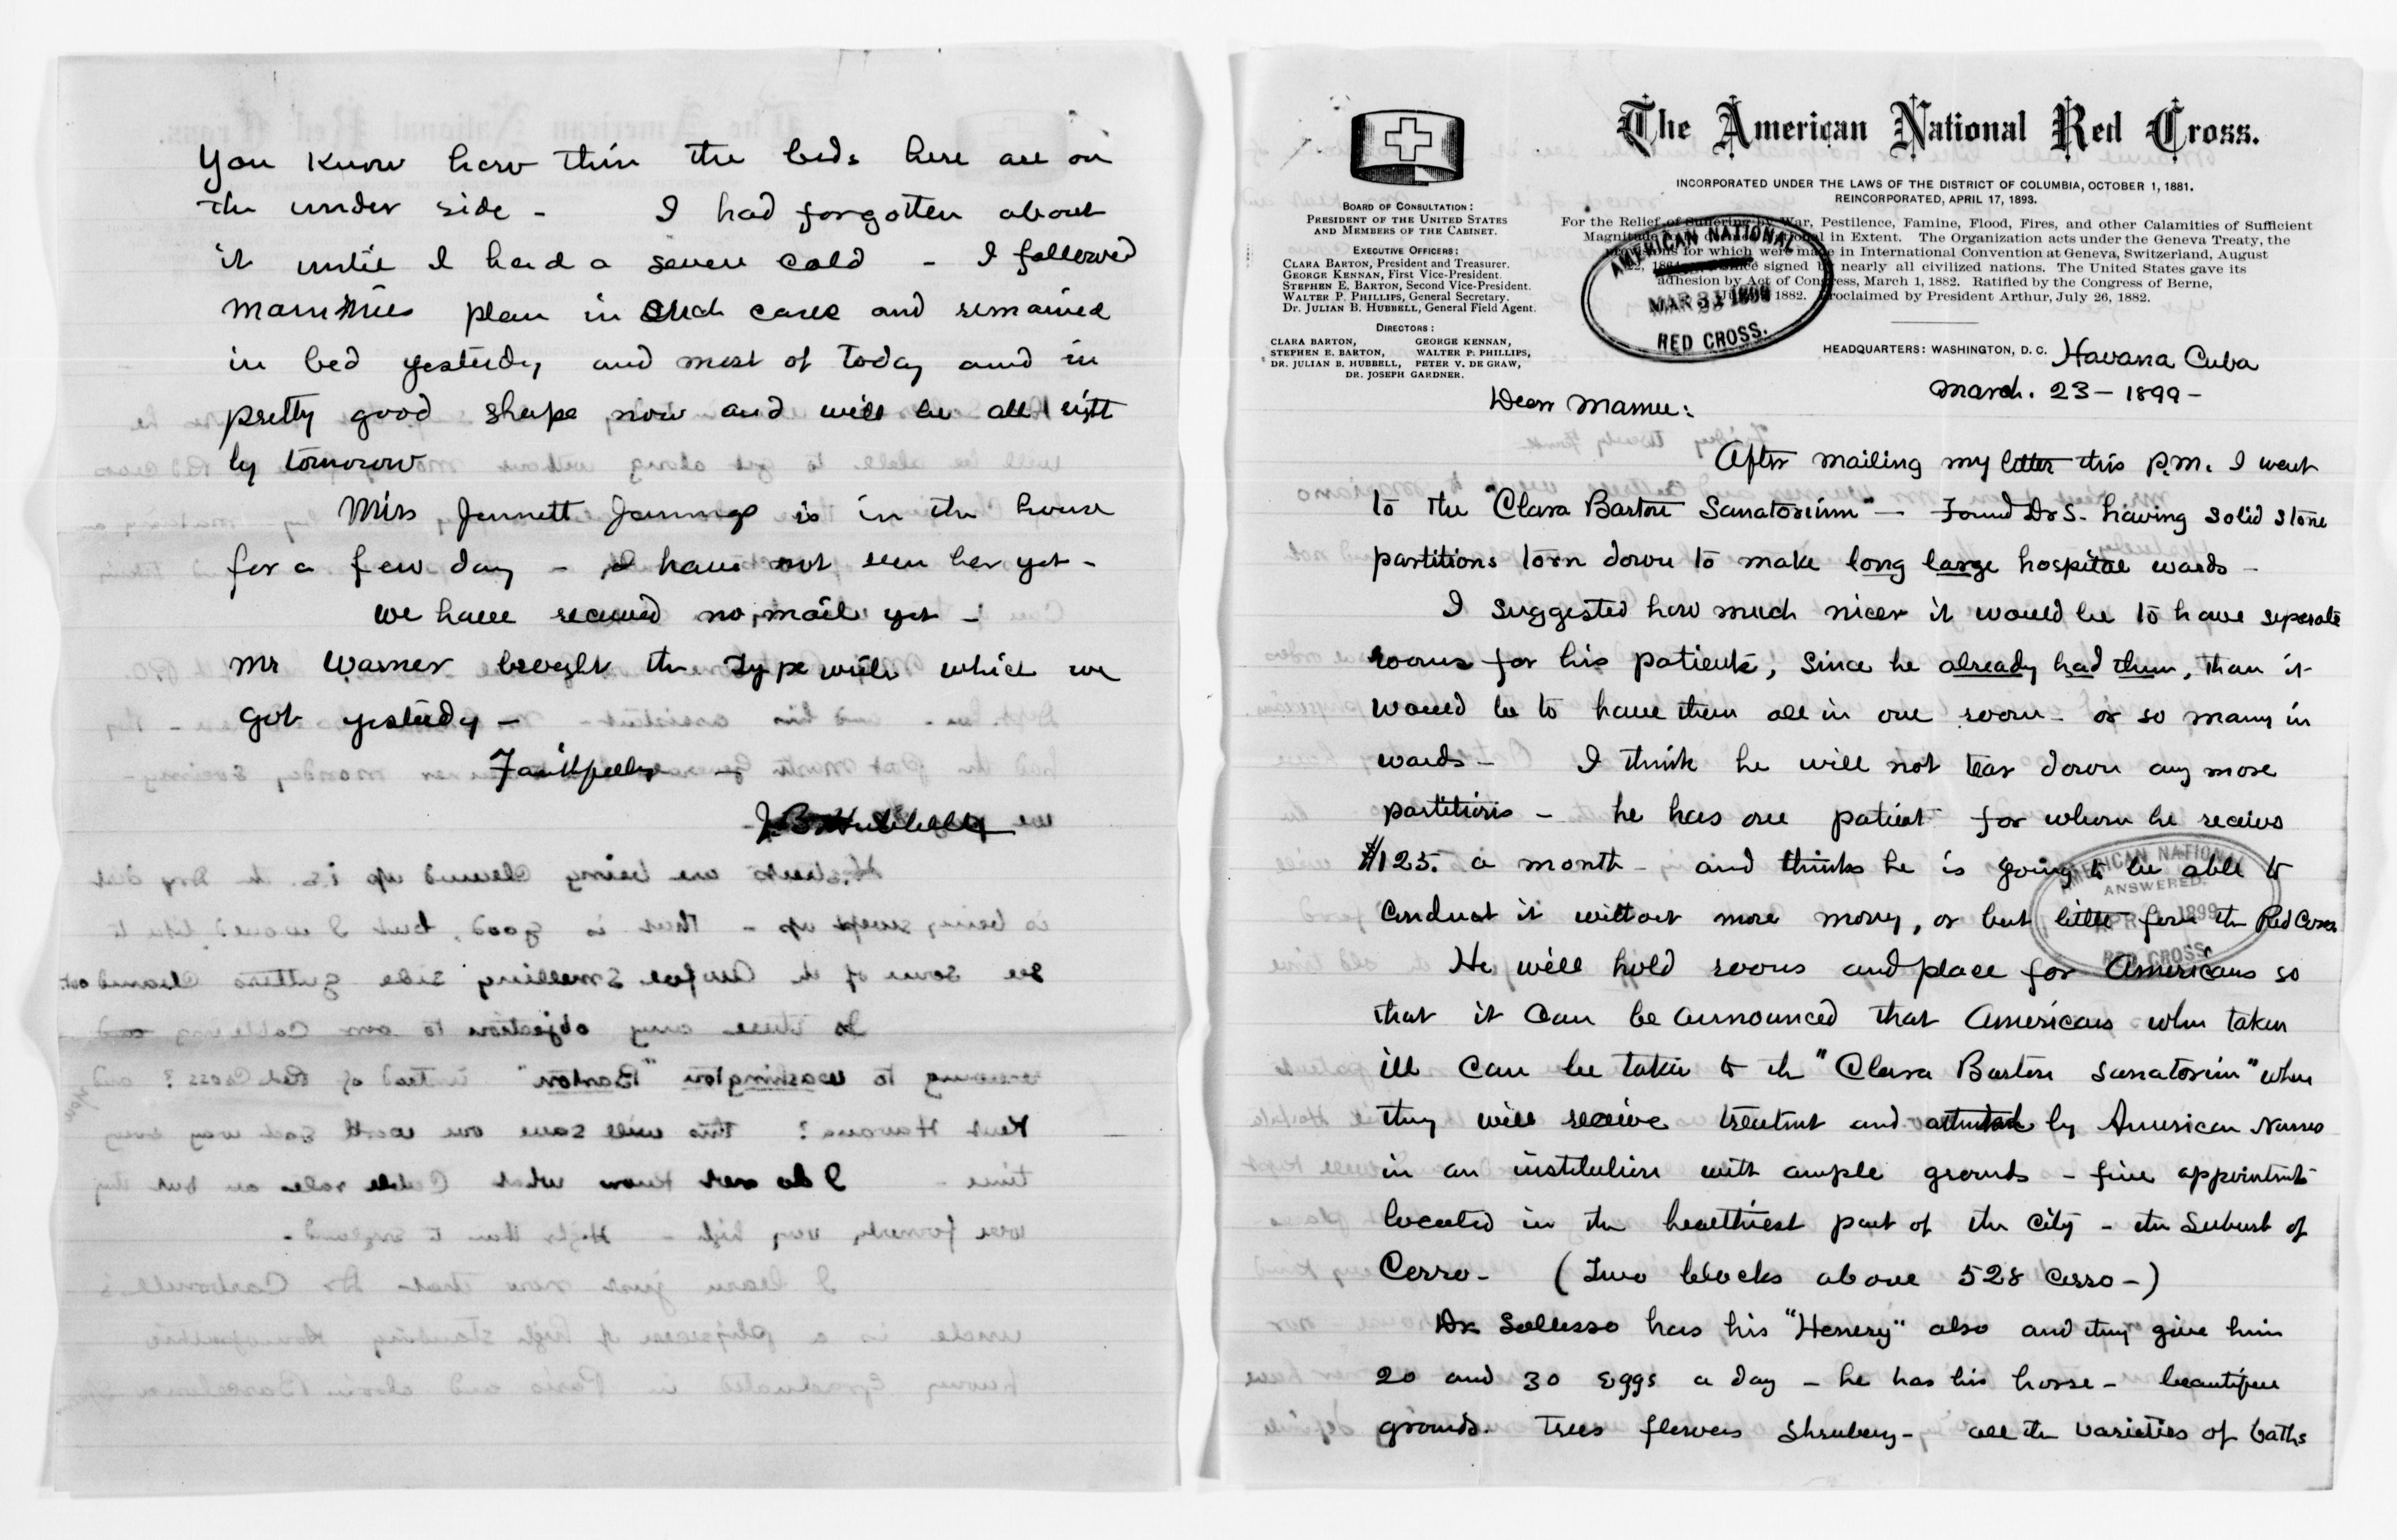 You know how thin the beds here are on
the under side - I had forgotten about
it until I had a severe cold - I followed
Mammies plan in such cases and remained
in bed yesterday and most of today and in
pretty good shape now and will be all right
by tomorow
Miss Jennett Jennings is in the house
for a few day - I have not seen her yet -
we have received no mail yet -
Mr Warner brought the type writer which we
got yesterdy -
Faithfully -
J. B. Hubbell
The American National Red Cross.
INCORPORATED UNDER THE LAWS OF THE DISTRICT OF COLUMBIA, OCTOBER 1, 1881.
REINCORPORATED, APRIL 17, 1893.
For the Relief of Suffering by War, Pestilence, Famine, Flood, Fires, and other Calamities of Sufficient
Magnitude to be deemed National in Extent. The Organization acts under the Geneva Treaty, the
provisions for which were made in International Convention at Geneva, Switzerland, August
22, 1864, and since signed by nearly all civilized nations. The United States gave its
adhesion by Act of Congress, March 1, 1882. Ratified by the Congress of Berne,
1882. Proclaimed by President Arthur, July 26, 1882.
BOARD OF CONSULTATION:
PRESIDENT OF THE UNITED STATES
AND MEMBERS OF THE CABINET.
EXECUTIVE OFFICERS:
CLARA BARTON, President and Treasurer.
GEORGE KENNAN, First Vice-President.
STEPHEN E. BARTON, Second Vice-President.
WALTER P. PHILLIPS, General Secretary.
Dr. JULIAN B. HUBBELL, General Field Agent.
DIRECTORS:
CLARA BARTON, GEORGE KENNAN,
STEPHEN E. BARTON, WALTER P. PHILLIPS,
DR. JULIAN B. HUBBELL, PETER V. DE GRAW,
DR. JOSEPH GARDNER.
AMERICAN NATIONAL
MAR 31 1899
RED CROSS.
HEADQUARTERS: WASHINGTON, D. C. Havana Cuba
March. 23 - 1899 -
Dear Mamie:
After mailing my letter this P.M. I went
to the "Clara Barton Sanatorium" - Found Dr S. having solid stone
partitions torn down to make long large hospital wards -
I suggested how much nicer it would be to have seperate
rooms for his patients, since he already had them, than it
would be to have them all in one room - or so many in
wards - I think he will not tear down any more
partitions - he has one patient for whom he recives
$125. a month - and thinks he is going to be able to
conduct it without more mony, or but little from the Red Cross
AMERICAN NATIONAL
ANSWERED.
APR 1899
RED CROSS.
He will hold rooms and place for Americans so
that it can be announced that Americans when taken
ill can be taken to the "Clara Barton Sanatorium" when
they will receive treatmt and attended by American Nurses
in an institution with ample grounds - fine appointmts
located in the healthiest part of the city - the Suburb of
Cerro - (Two blocks above 528 Cerro -)
Dr Sollosso has his "Henery" also and they give him
20 and 30 eggs a day - he has his horse - beautiful
grounds. Trees flowers shrubery - all the varieties of baths